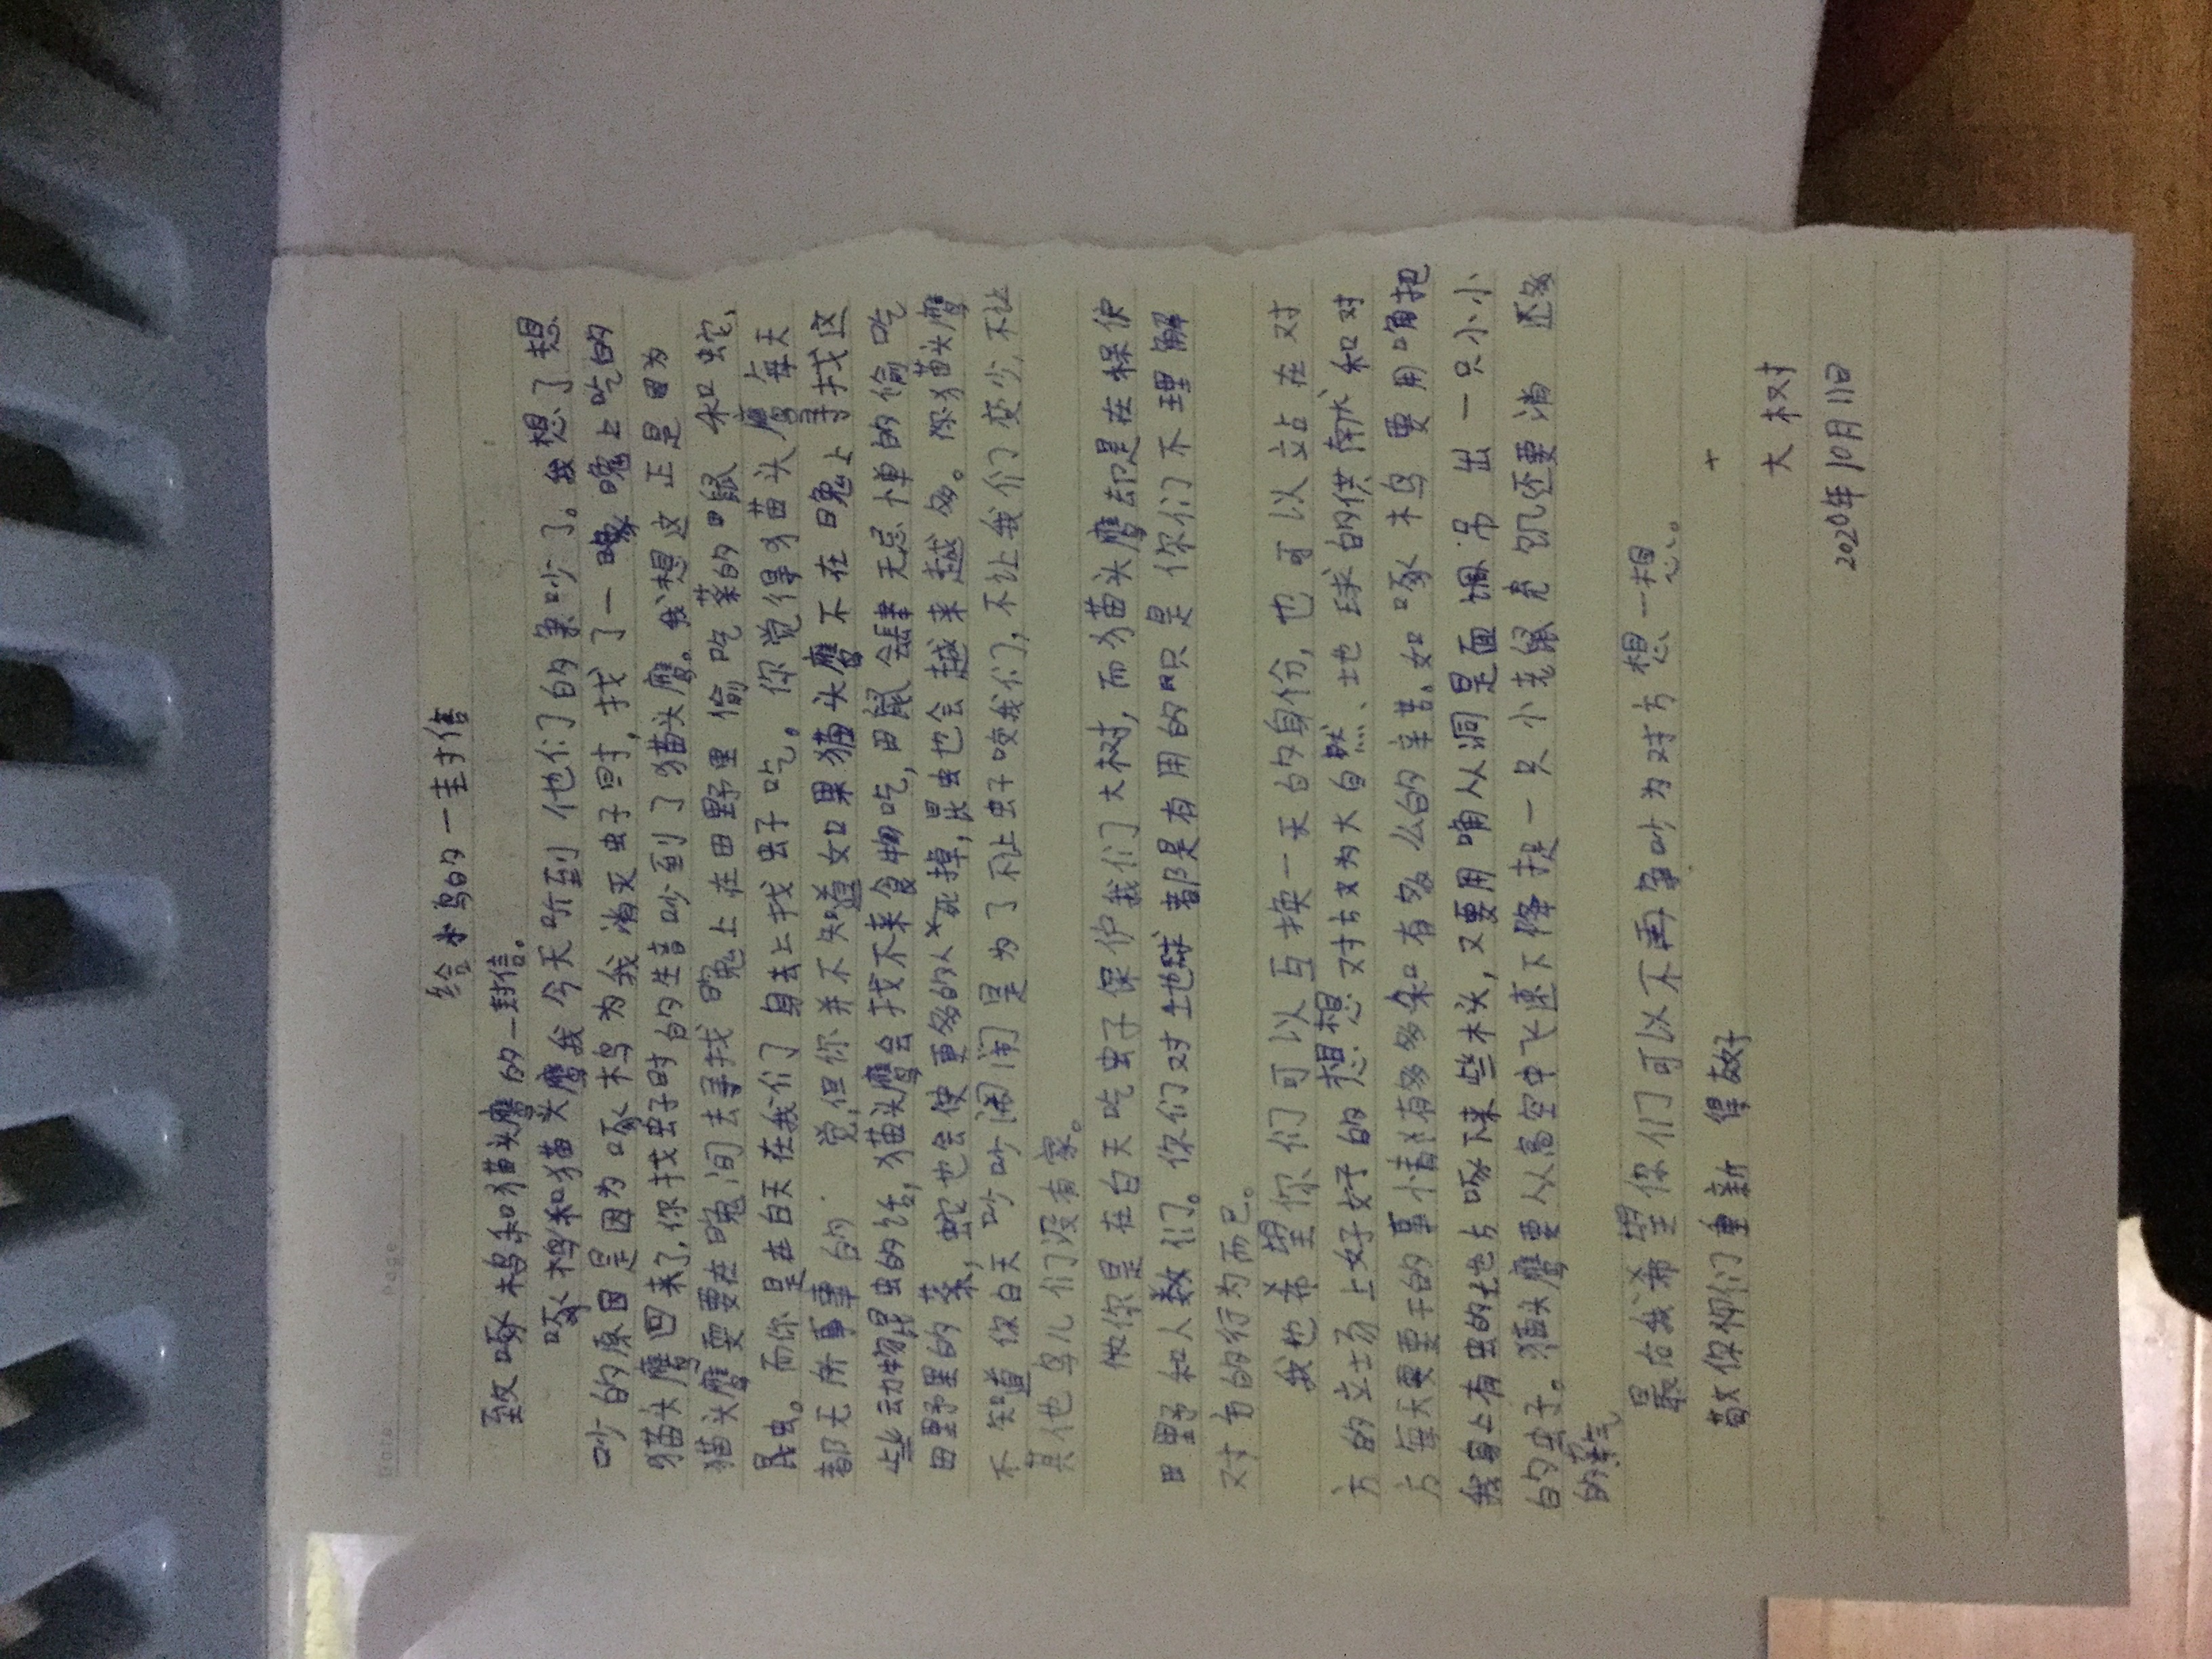 给木鸟的一封信
致啄木鸟和猫头鹰的一封信。
啄木鸟和猫头鹰我今天听到他们的争吵了。我想了想
吵的原因是因为啄木鸟为我消灭虫子时,找了一晚上吃的
猫头鹰回来了,你找虫子时的生音吵到了猫头鹰。我想这正是因为
猫头鹰要在晚间去寻找晚上在田野里偷吃菜的田鼠和蛇、
昆虫。而你是在白天在我们身去上找虫子吃。你觉得猫头鹰每天
都无所事事的 觉,但你并不知道如果猫头鹰不在晚上寻找这
些动物昆虫的话,猫头鹰会找不来食物吃,田鼠会肆无忌惮的偷吃
田野里的菜,蛇也会使更多的人死掉,昆虫也会越来越多。你猫头鹰
不知道你白天吵吵闹闹是为了不让虫子咬我们,不让我们变少,不让
其他鸟儿们没有家。
做你是在白天吃虫子保护我们大树,而猫头鹰却是在保护
田野和人类们。你们对土地球都是有用的只是你们不理解
对方的行为而已。
我也希望你们可以互换一天的身份,也可以站在对
方的立场上好好的想想对方为大自然、地球的供献和对
方每天要干的事情有多多和有多么的辛苦。如啄木鸟要用嘴把
我身上有虫的地方啄下来些木头,又要用嘴从洞里面 吊出一只小小
的虫子。猫头鹰要从高空中飞速下降捉一只小老鼠充饥还要消 还多
的 气
最后我希望你们可以不再争吵为对方想一想。
敬你们重新得好
大树
2020年10月11日